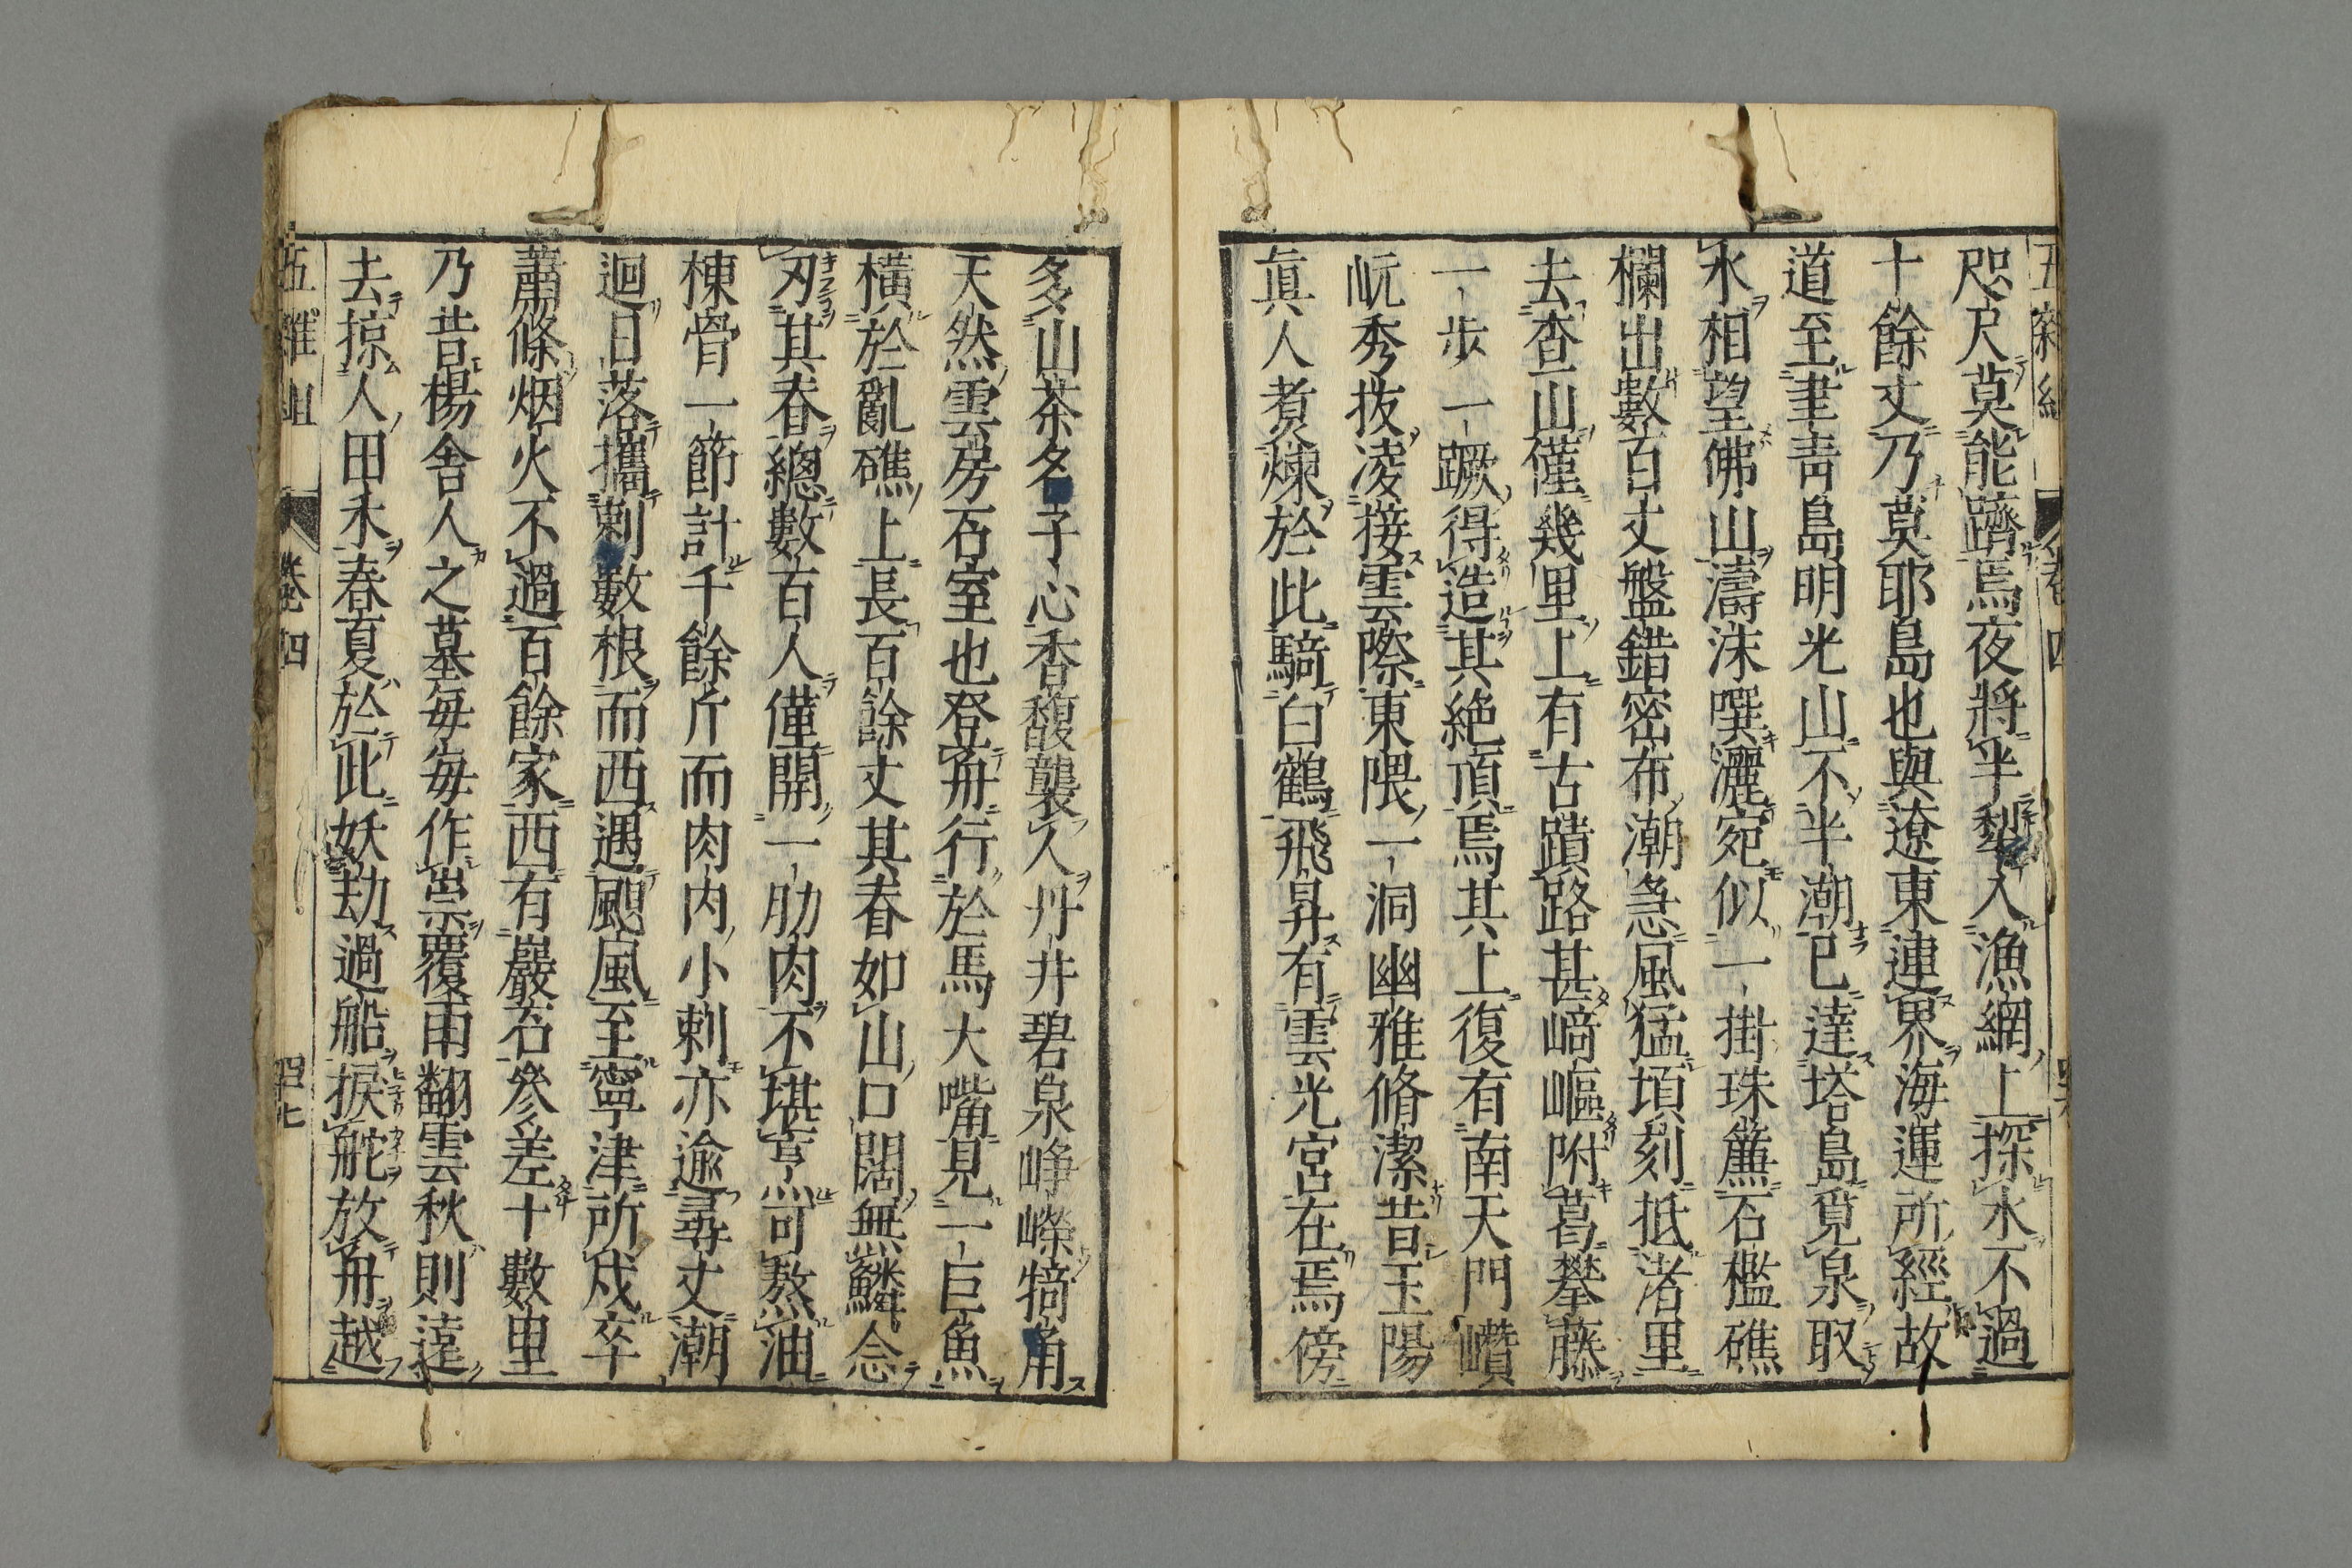 咫尺莫能躋焉夜將半犂入漁網上探水不過
十餘丈乃莫耶島也與遼東連界海運所經故
道至聿青島明光山不半潮已達塔島覓泉取
水相望佛山濤沫噀灑宛似一掛珠簾石檻礁
欄出數百丈盤錯密布潮急風猛頃刻抵渚里
去查山僅幾里上有古蹟路甚﨑嶇附葛攀藤
一步一蹶得造其絶頂焉其上復有南天門巑
岏秀拔凌接雲際東隈一洞幽雅脩潔昔玉陽
眞人煮煉於此騎白鶴飛昇有雲光宮在焉傍
多山茶名子心香馥襲人丹井碧泉崢嶸犄角
天然雲房石室也登舟行於馬大嘴見一巨魚
橫於亂礁上長百餘丈其春如山口闊無鱗念
刃其春總數百人僅開一肋肉不堪烹可熬油
棟骨一節計千餘斤而肉內小刺亦逾尋丈潮
迴日落攜刺數根而西遇颶風至寧津所戍卒
蕭條烟火不過百餘家西有巖石參差十數里
乃昔楊舍人之墓每每作祟覆雨翻雲秋則遠
去掠人田禾春夏於此妖劫過船捩舵放舟越
五雜俎
卷四
四十七